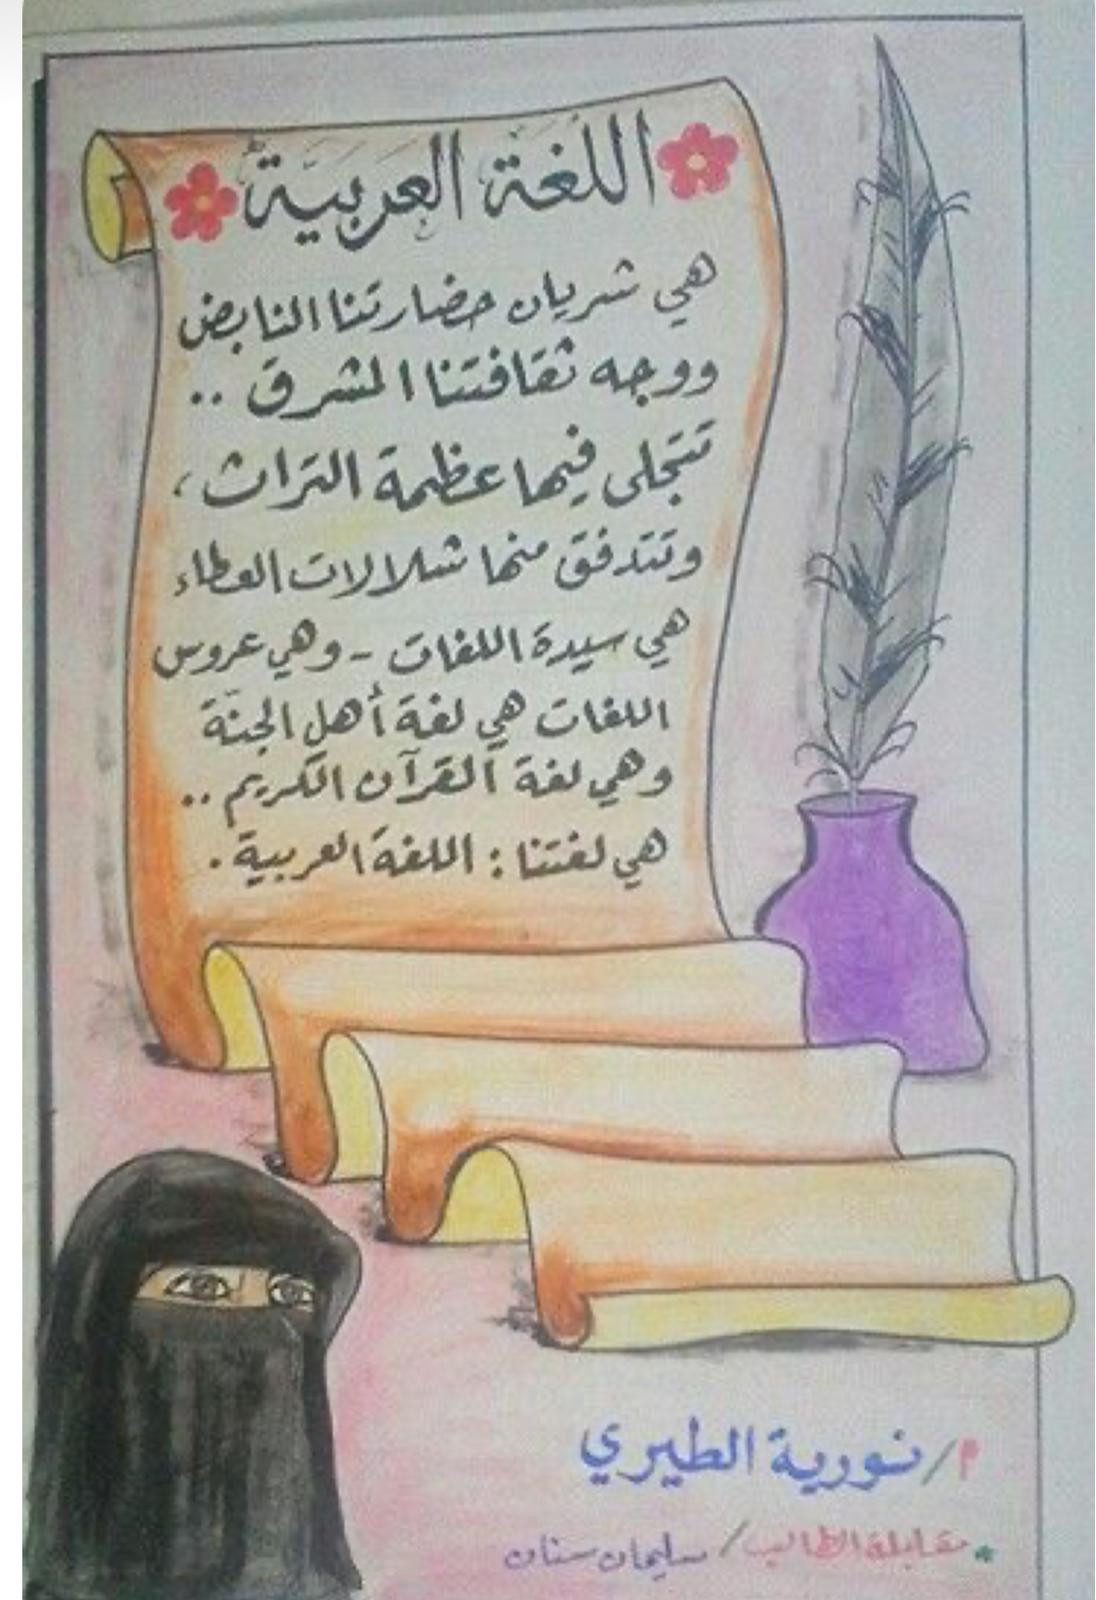 اللغة العربية
هي شريان حضارتنا النابض
ووجه ثقافتنا المشرق ..
تتجلى فيها عظمة التراث ،
وتتدفق منها شلالات العطاء
هي سيدة اللغات - وهي عروس
اللغات هي لغة أهل الجنّة
وهي لغة القرآن الكريم ..
هي لغتنا : اللغة العربية .
م/ نورية الطيري
* مقابلة الطالب / سليمان سنان